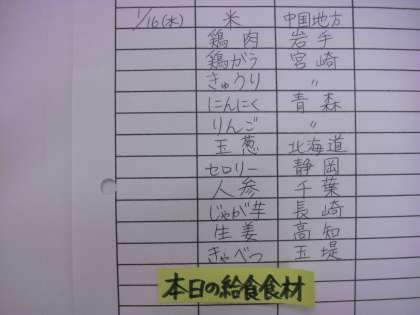 1/16(水) 米 中国地方
鶏肉 岩手
鶏がら 宮崎
きゅうり 〃
にんにく 青森
りんご 〃
玉葱 北海道
セロリー 静岡
人参 千葉
じゃが芋 長崎
生姜 高知
きゃべつ 玉堤
本日の給食食材